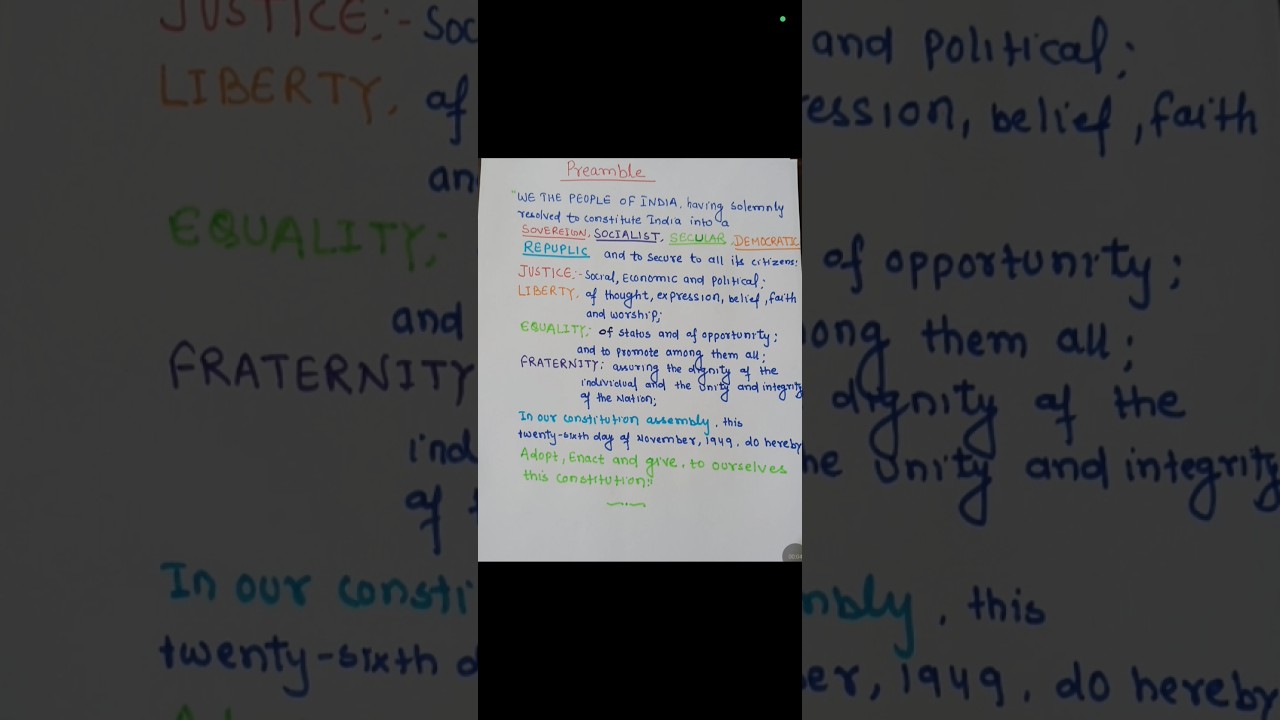 Preamble
"WE THE PEOPLE OF INDIA, having solemnly
resolved to constitute India into a
SOVEREION, SOCIALIST, SECULAR, DEMOCRATIC
REPUPLIC and to secure to all its citizens:
JUSTICE:- Social, Economic and political;
LIBERTY, of thought, expression, belief, faith
and worship;
EQUALITY; of status and of opportunity;
and to promote among them all;
FRATERNITY; assuring the dignity of the
individual and the Unity and integrity
of the Nation;
In our constitution assembly, this
twenty-sixth day of November, 1949, do hereby
Adopt, Enact and give, to ourselves
this constitution: